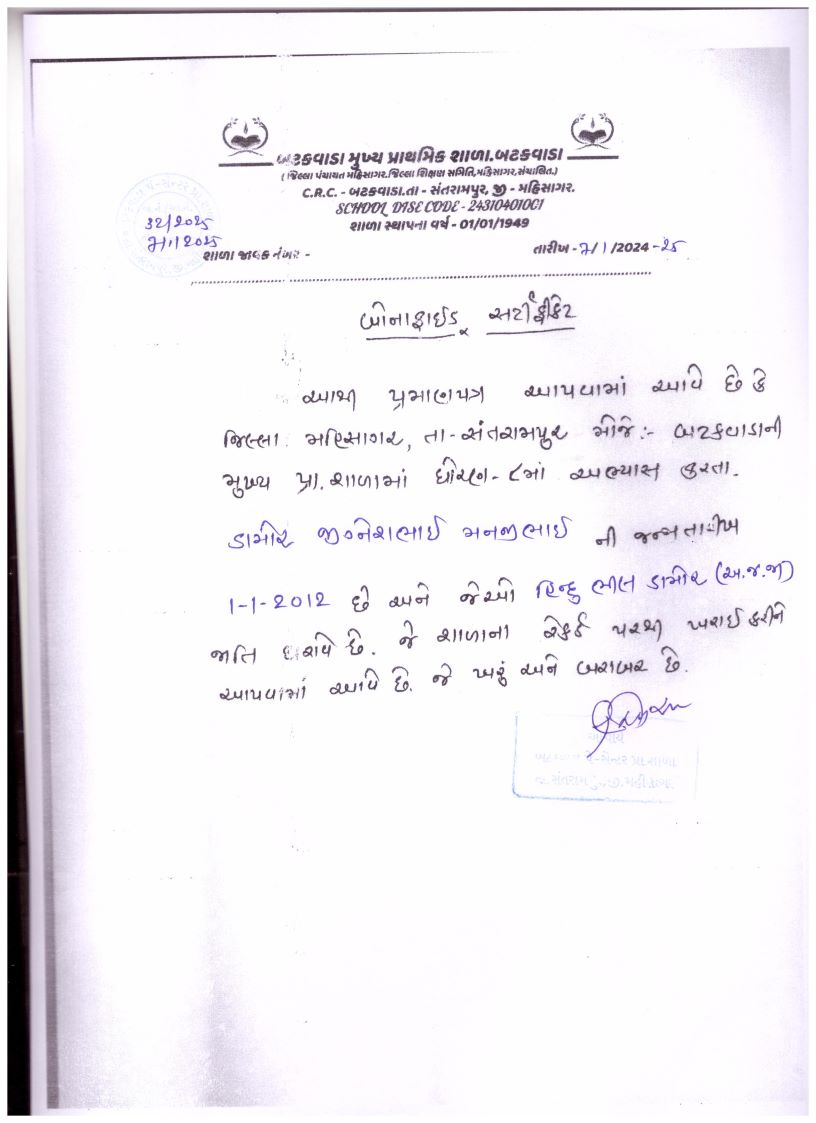 બટકવાડા મુખ્ય પ્રાથમિક શાળા.બટકવાડા
( જિલ્લા પંચાયત મહિસાગર.જિલ્લા શિક્ષણ સમિતિ,મહિસાગર,સંચાલિત.)
C.R.C. - બટકવાડા.તા - સંતરામપુર, જી - મહિસાગર.
SCHOOL DISE CODE - 24310401001
શાળા સ્થાપના વર્ષ - 01/01/1949
32/2025
7/1/2025
શાળા જાવક નંબર -
તારીખ - 7/1/2024-25
બોનાફાઈડ સર્ટીફીકેટ
આથી પ્રમાણપત્ર આપવામાં આવે છે કે
જિલ્લા મહિસાગર, તા-સંતરામપુર મોજે:- બટકવાડાની
મુખ્ય પ્રા. શાળામાં ધોરણ-૮માં અભ્યાસ કરતા.
ડામોર જીગ્નેશભાઈ મનજીભાઈ ની જન્મ તારીખ
1-1-2012 છે અને જેઓ હિન્દુ ભીલ ડામોર (અ.જ.જા)
જાતિ ધરાવે છે. જે શાળાના રેકર્ડ પરથી ખરાઈ કરીને
આપવામાં આવે છે. જે ખરું અને બરાબર છે.
આચાર્ય
બટકવાડા પે-સેન્ટર પ્રા.શાળા